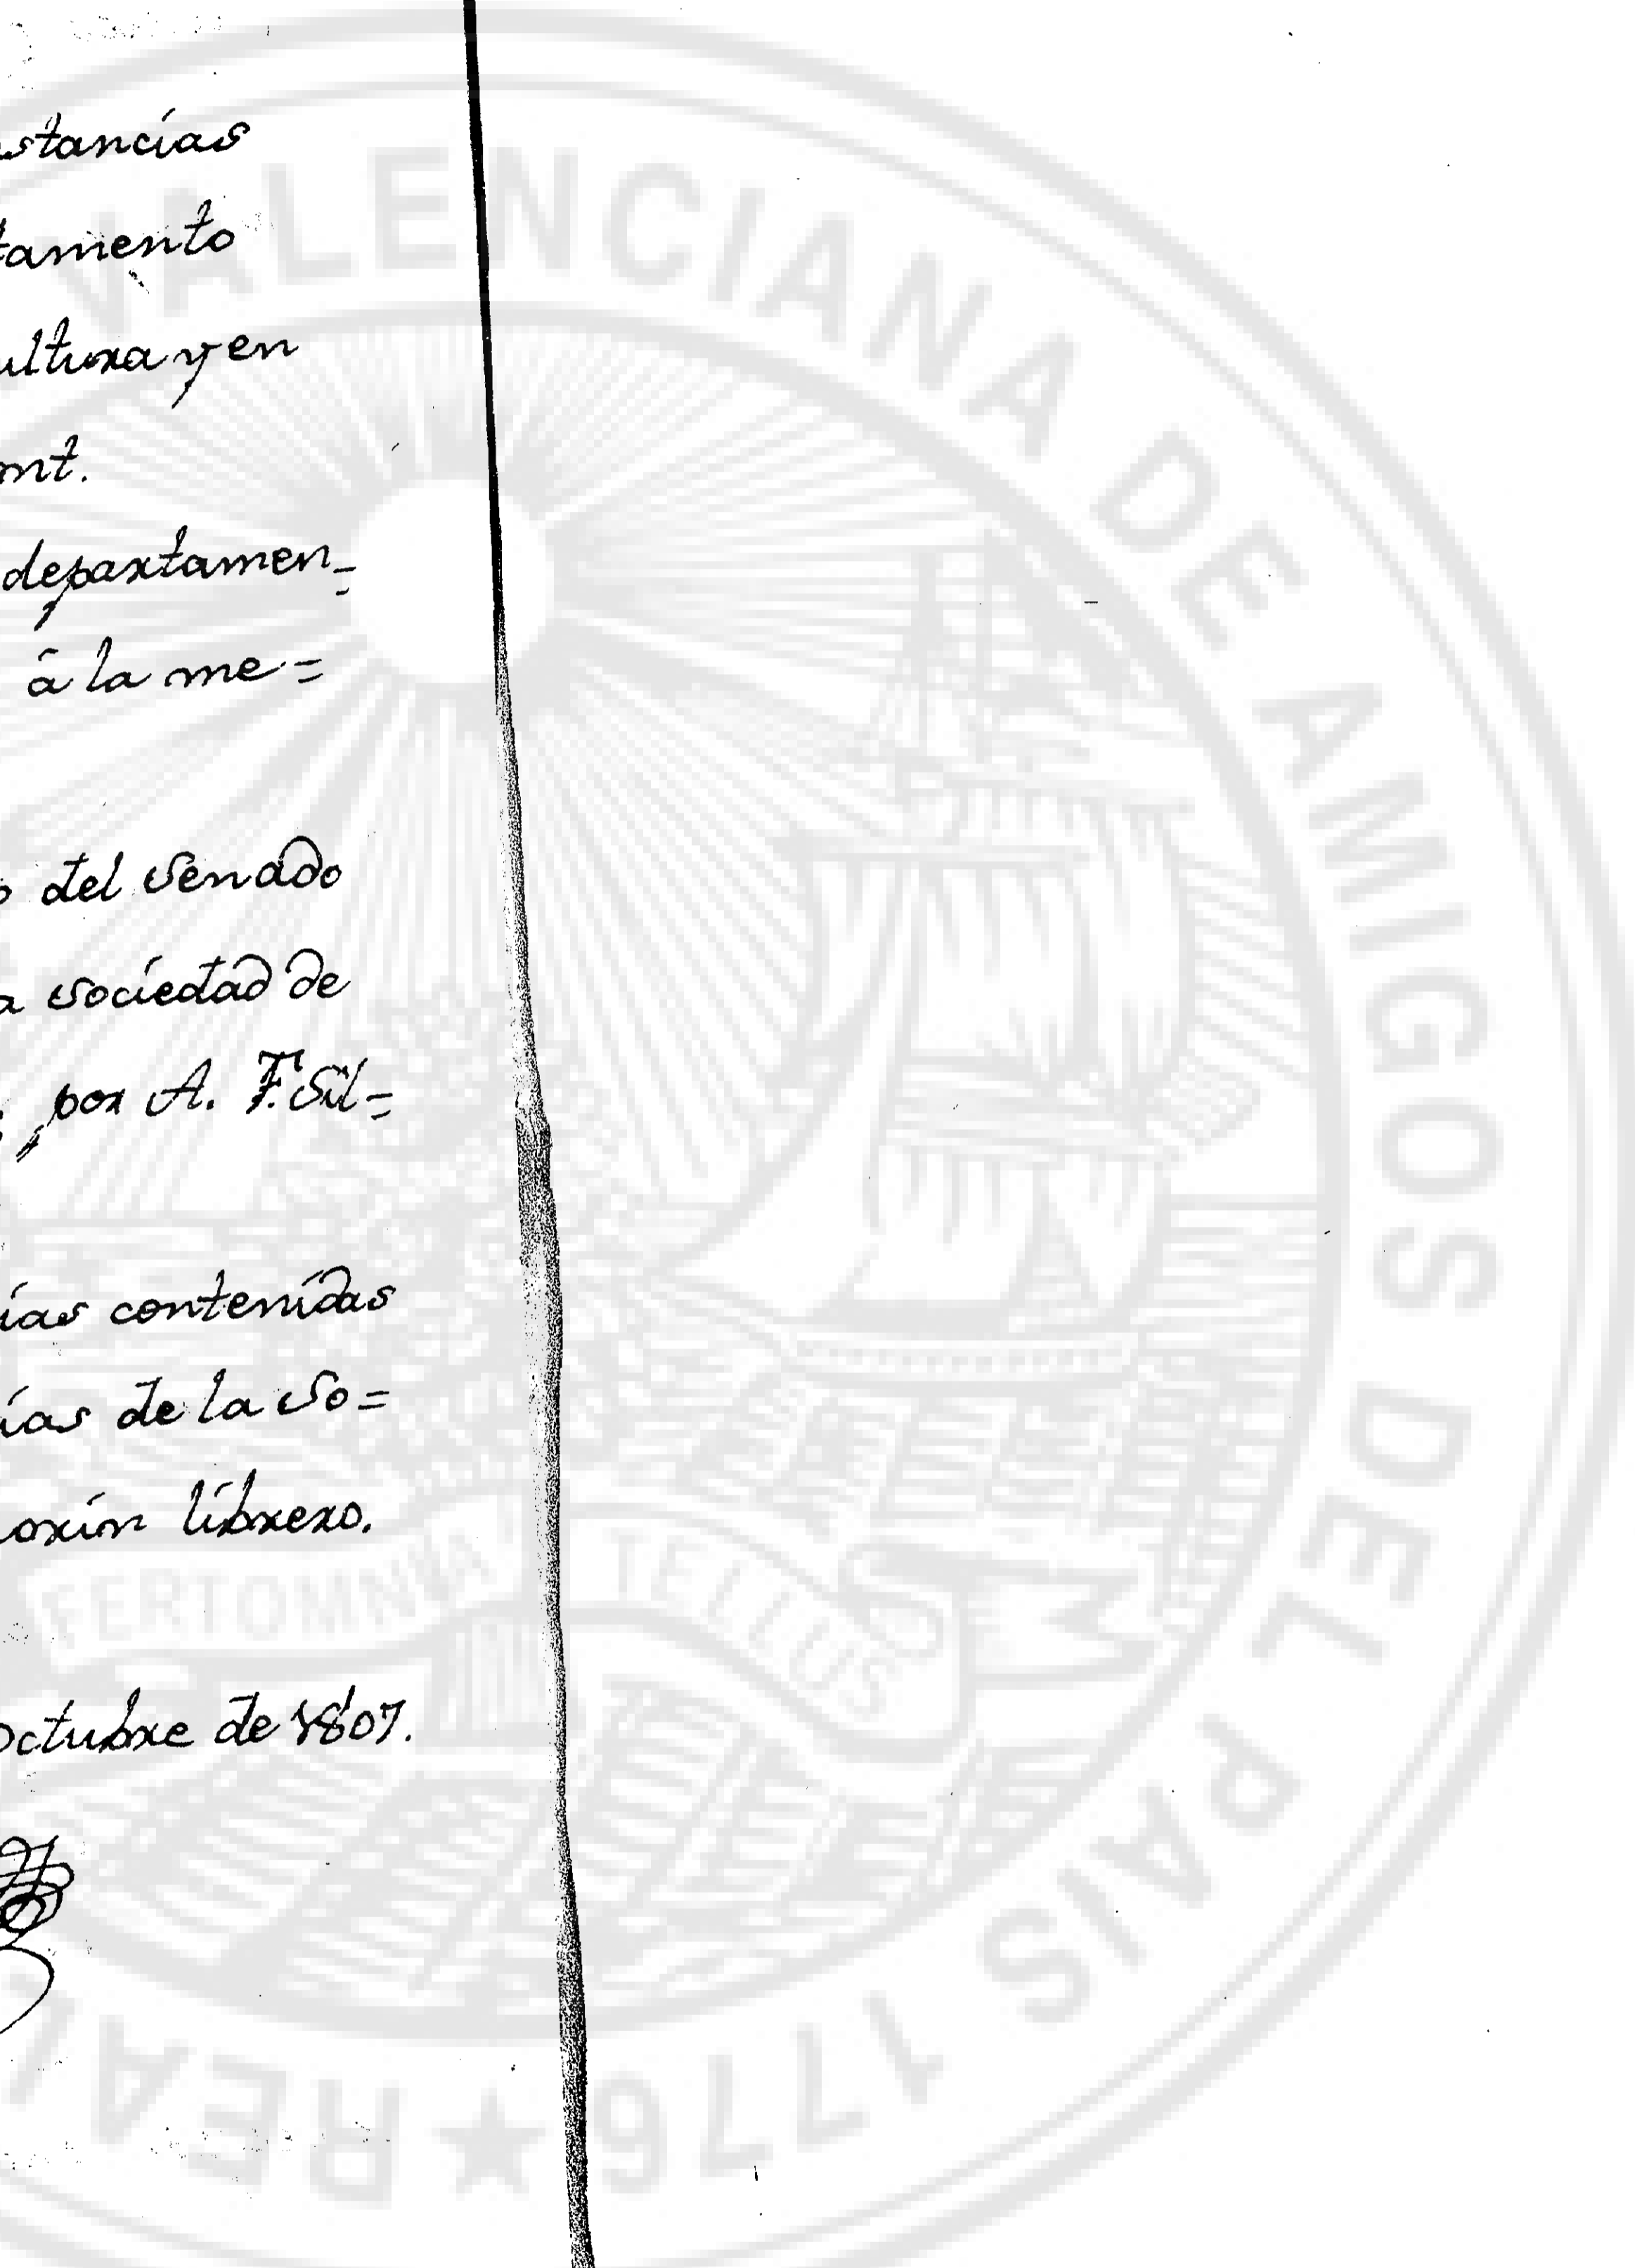 stancias
tamento
ultura y en
mt.
departamen-
á la me=
o del Senado
a Sociedad de
por A. F. Sil=
ias contenidas
ias de la So=
orin librero.
octubre de 1807.
VALENCIANA DE AMIGOS DEL PAIS 1776 ★ REAL
FERT OMNIA TELLUS